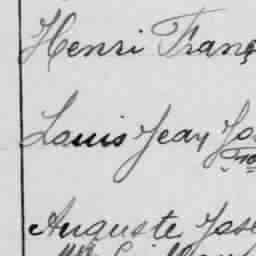 Henri Franç
Louis Jean Jo
Auguste Jose